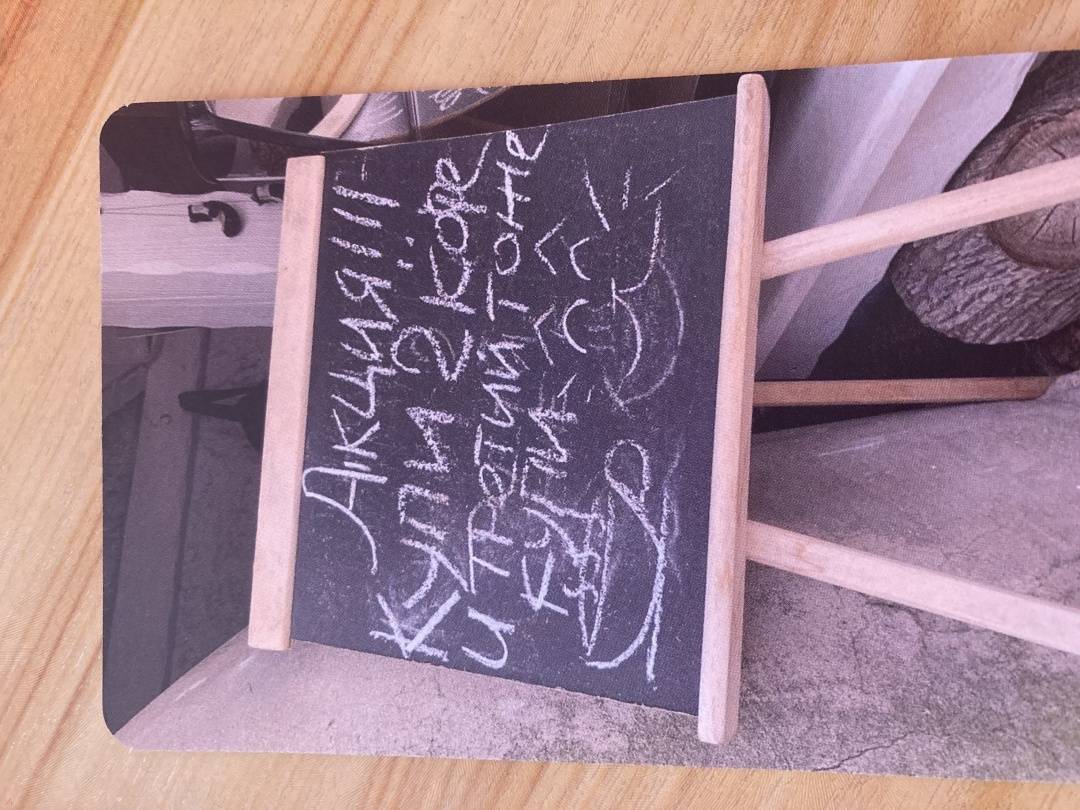 Акция!!!
Купи 2 кофе
и третий тоже
купи